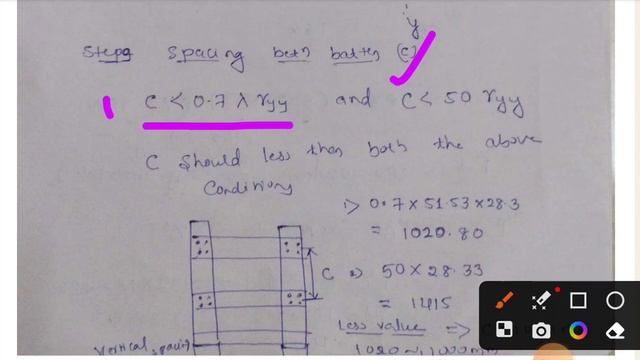 y
Step9 Spacing betn batten (C)
C < 0.7 λ ryy and C < 50 ryy
C Should less then both the above
Conditions
1> 0.7 × 51.53 × 28.3
= 1020.80
C 2) 50 × 28.33
= 1415
Less value =>
Vertical spacing